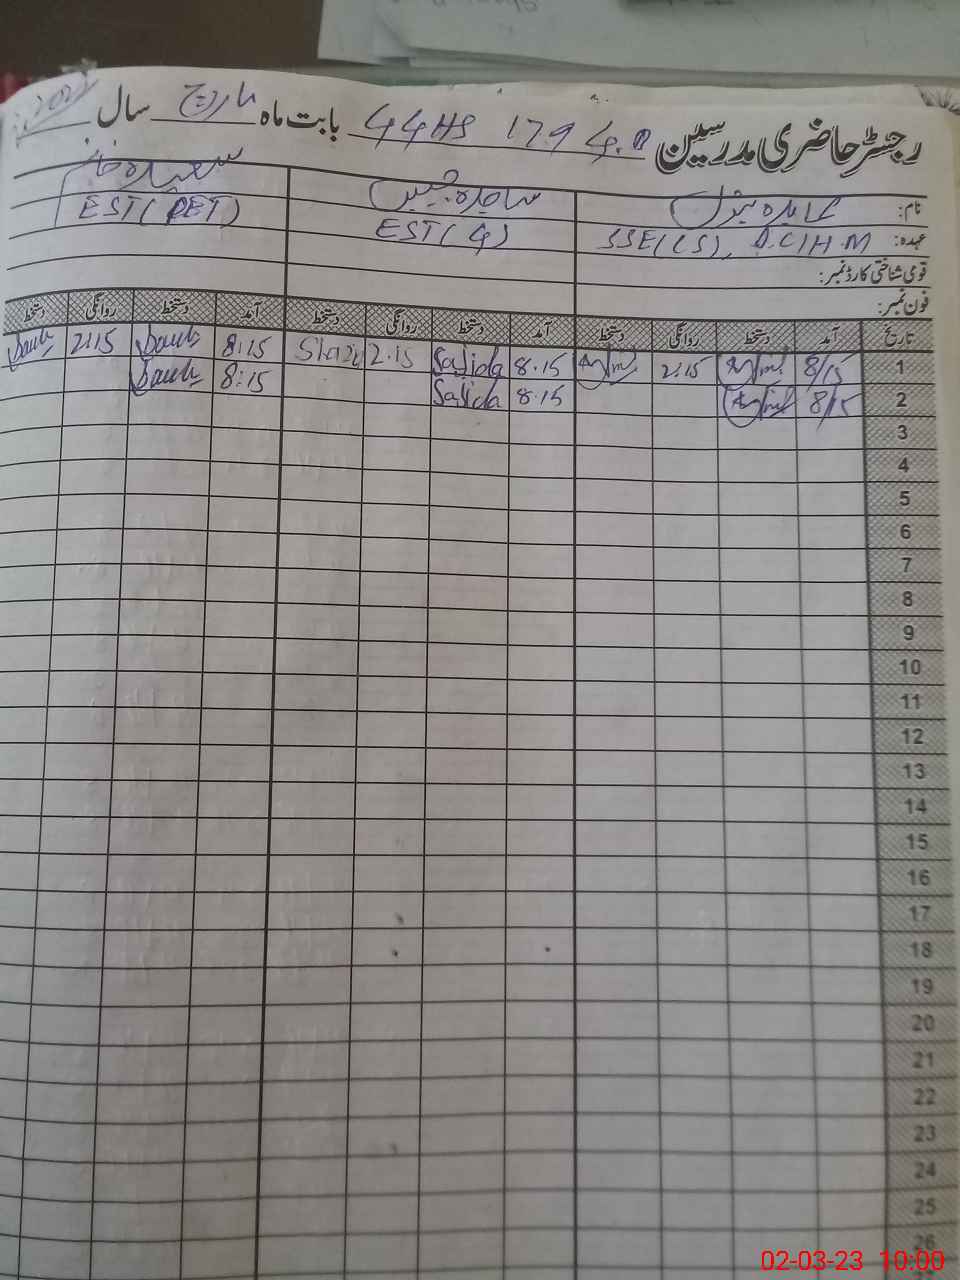 رجسٹر حاضری مدرسین GGHS 179 G.B بابت ماہ مارچ سال
نام: عابدہ بتول ساجدہ سعیدہ خانم
عہدہ: SSE(CS), D.C/H.M EST( G) EST( PET)
قومی شناختی کارڈ نمبر:
فون نمبر:
تاریخ آمد دستخط روانگی دستخط آمد دستخط روانگی دستخط آمد دستخط روانگی دستخط
1 8/15 2:15 8.15 Sajida 2.15 8:15 2:15
2 8/15 8.15 Sajida 8:15
3
4
5
6
7
8
9
10
11
12
13
14
15
16
17
18
19
20
21
22
23
24
25
26
02-03-23 10:00